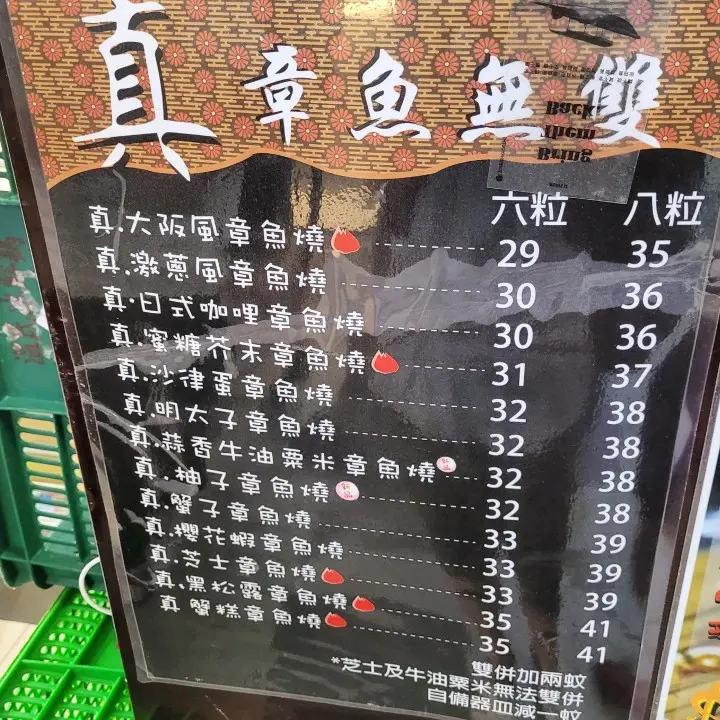 真 章魚無雙
Back
Them
Bring
六粒 八粒
真.大阪風章魚燒 29 35
真.激蔥風章魚燒 30 36
真.日式咖哩章魚燒 30 36
真.蜜糖芥末章魚燒 31 37
真.沙律蛋章魚燒 32 38
真.明太子章魚燒 32 38
真.蒜香牛油粟米章魚燒 新品 32 38
真.柚子章魚燒 新品 32 38
真.蟹子章魚燒 33 39
真.櫻花蝦章魚燒 33 39
真.芝士章魚燒 33 39
真.黑松露章魚燒 35 41
真 蟹糕章魚燒 35 41
雙併加兩蚊
*芝士及牛油粟米無法雙併
自備器皿減一蚊